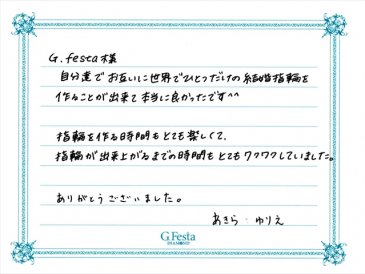 G.festa様
自分達でお互いに世界でひとつだけの結婚指輪を
作ることが出来て本当に良かったです^^
指輪を作る時間もとても楽しくて、
指輪が出来上がるまでの時間もとてもワクワクしていました。
ありがとうございました。
あきら・ゆりえ
G.Festa
DIAMOND